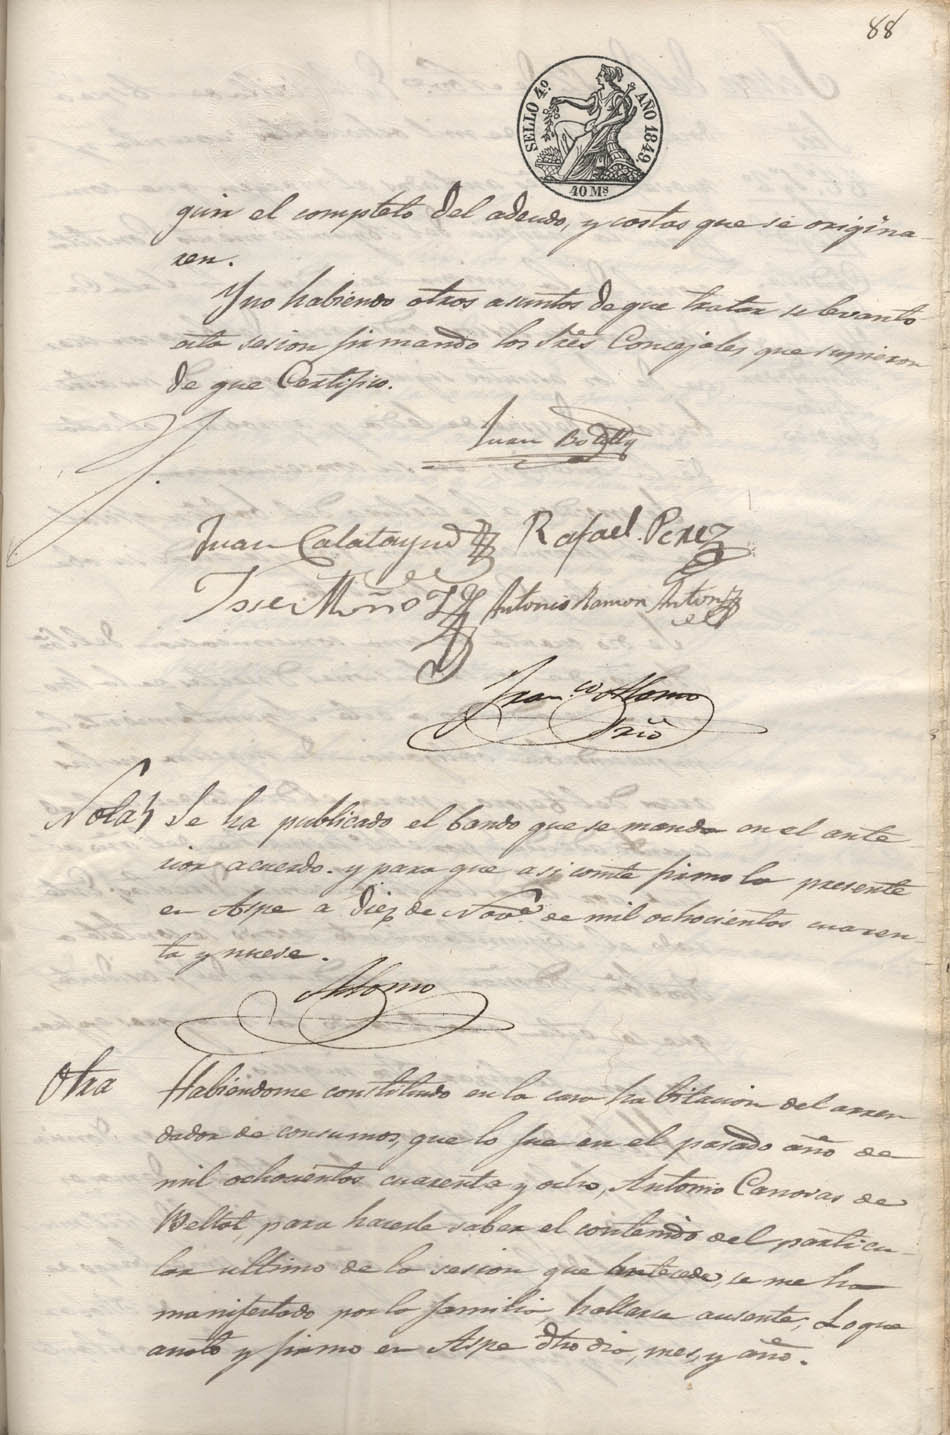 88
SELLO 4º AÑO 1849.
40 Ms
gun el completo del adeudo, y costas que se origina-
ren.
Y no habiendo otros asuntos de que tratar se levantó
esta sesion firmando los Sres Concejales que supieron
de que Certifico.
Juan Botella
Juan Calatayud Rafael Perez
Jose Antonio Ramon Anton
Franco Alonso
Srio
Nota Se ha publicado el bando que se manda en el ante-
rior acuerdo. y para que asi conste firmo la presente
en Aspe a diez de Nove de mil ochocientos cuaren-
ta y nueve.
Alonso
Otra Habiendome constituido en la casa habitacion del arren
dador de consumos, que lo fue en el pasado año de
mil ochocientos cuarenta y ocho, Antonio Canovas de
Beltot, para hacerle saber el contenido del particu-
lar ultimo de la sesion que antecede, se me ha
manifestado por la familia, hallarse ausente, Lo que
anoto y firmo en Aspe dho dia, mes, y año.